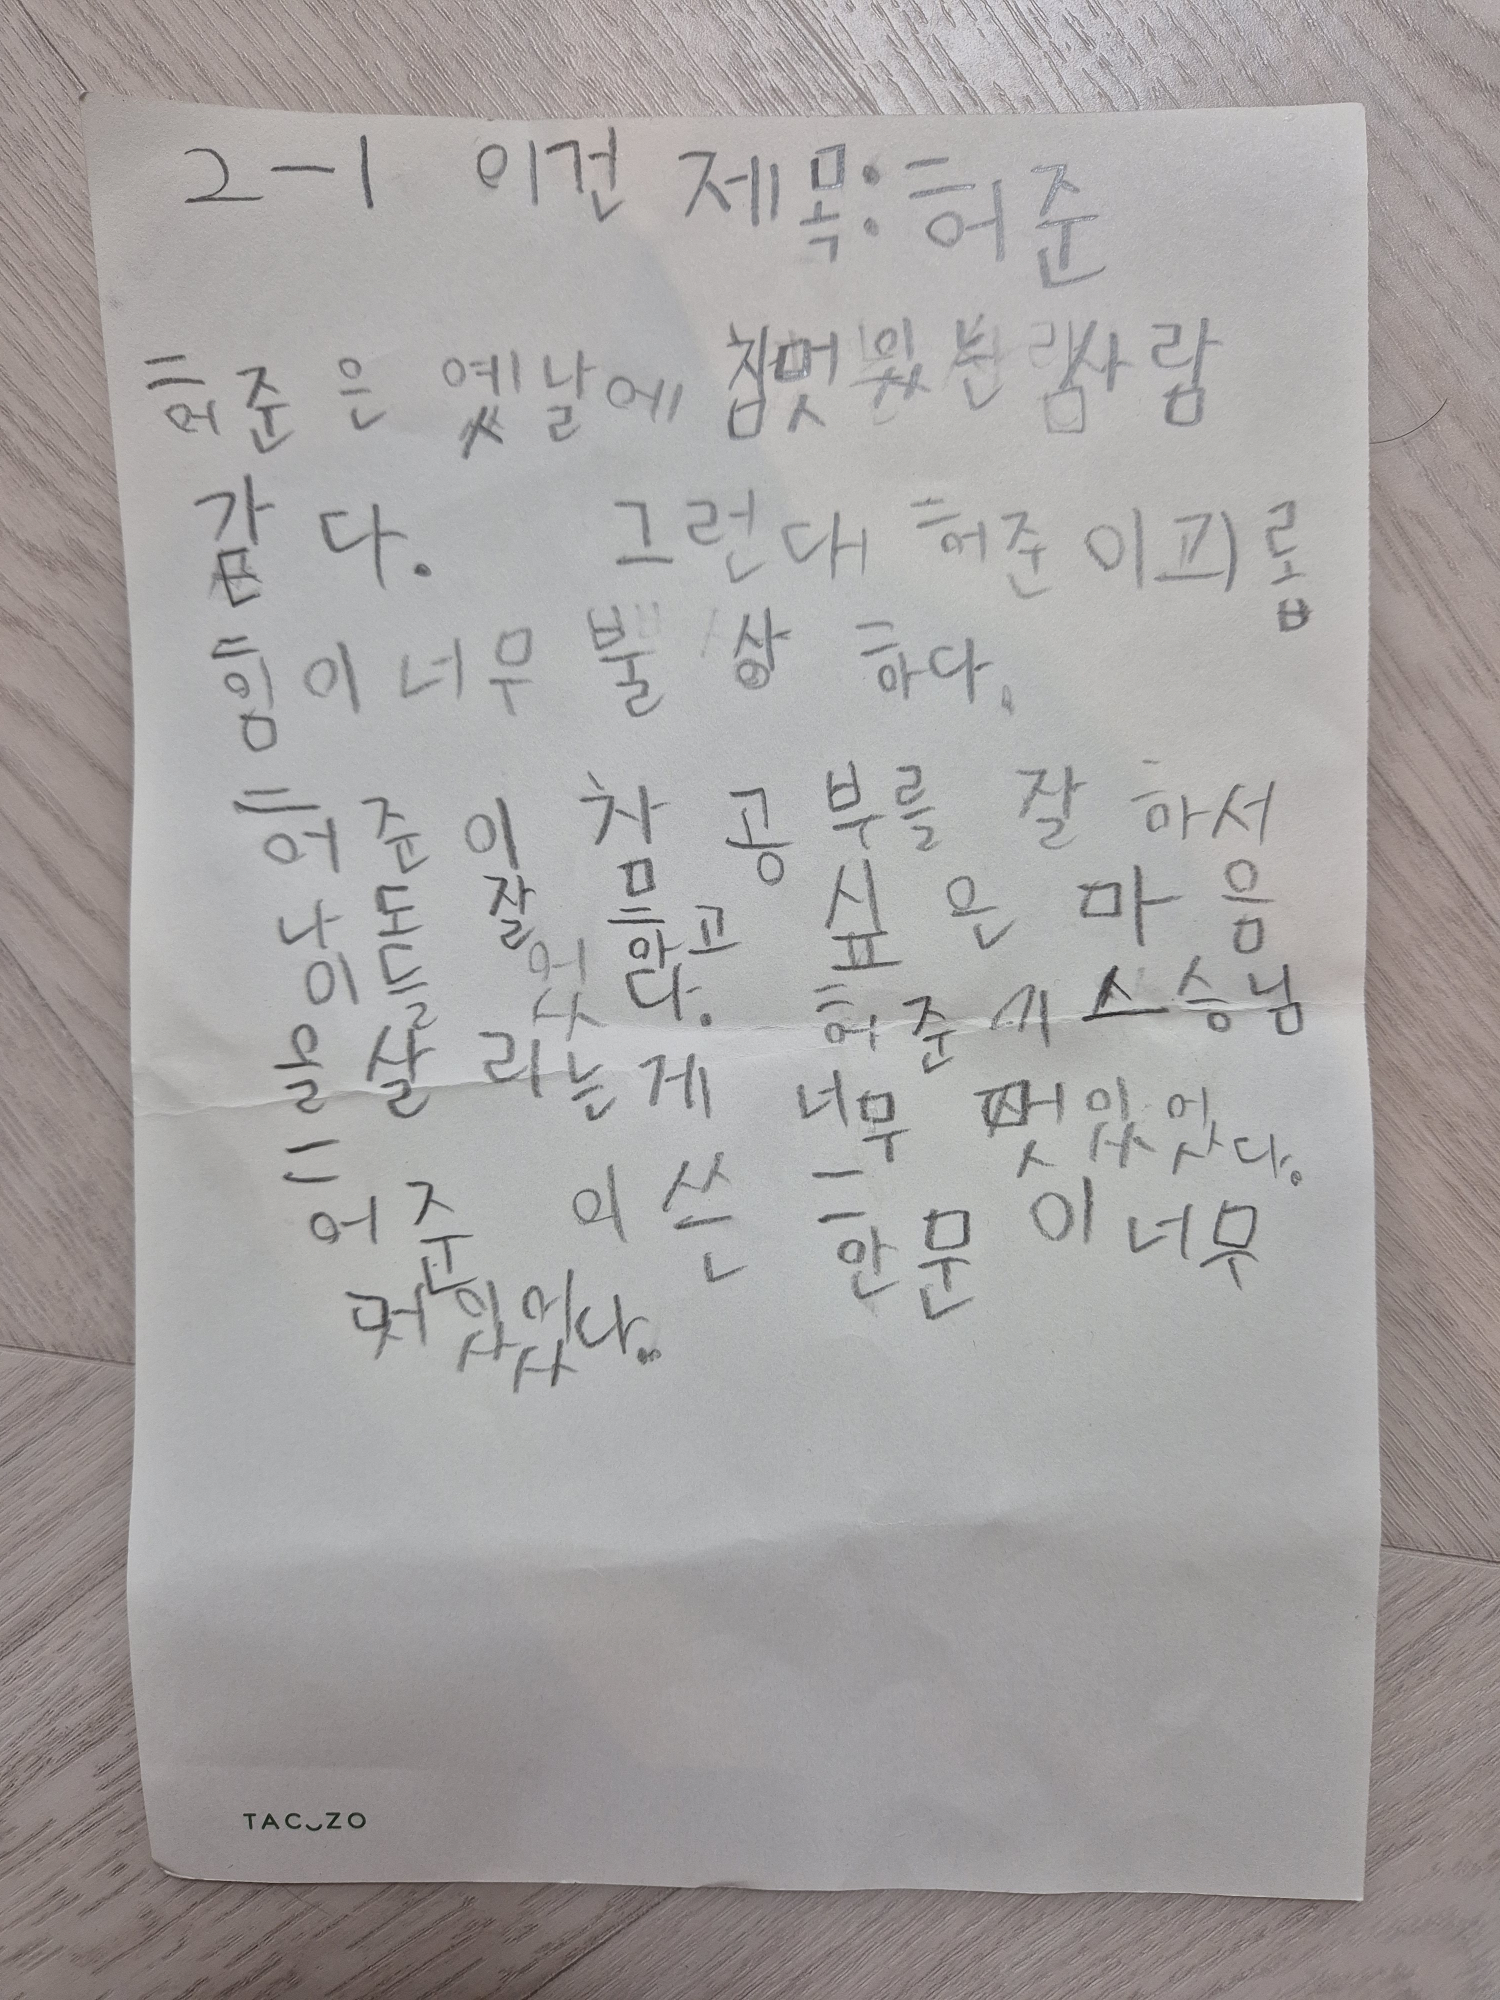 2-1 이건 제목: 허준
허준은 옛날에 참멋있는사람
같다. 그런대 허준이괴롭
힘이너무 불상 하다.
허준이 참 공부를 잘하서
나도 잘 하고 싶은 마음
이들 었다. 허준기 스승님
을살리는게 너무 멋있었다.
허준 의쓴 한문 이너무
머있었다.
TAC_ZO